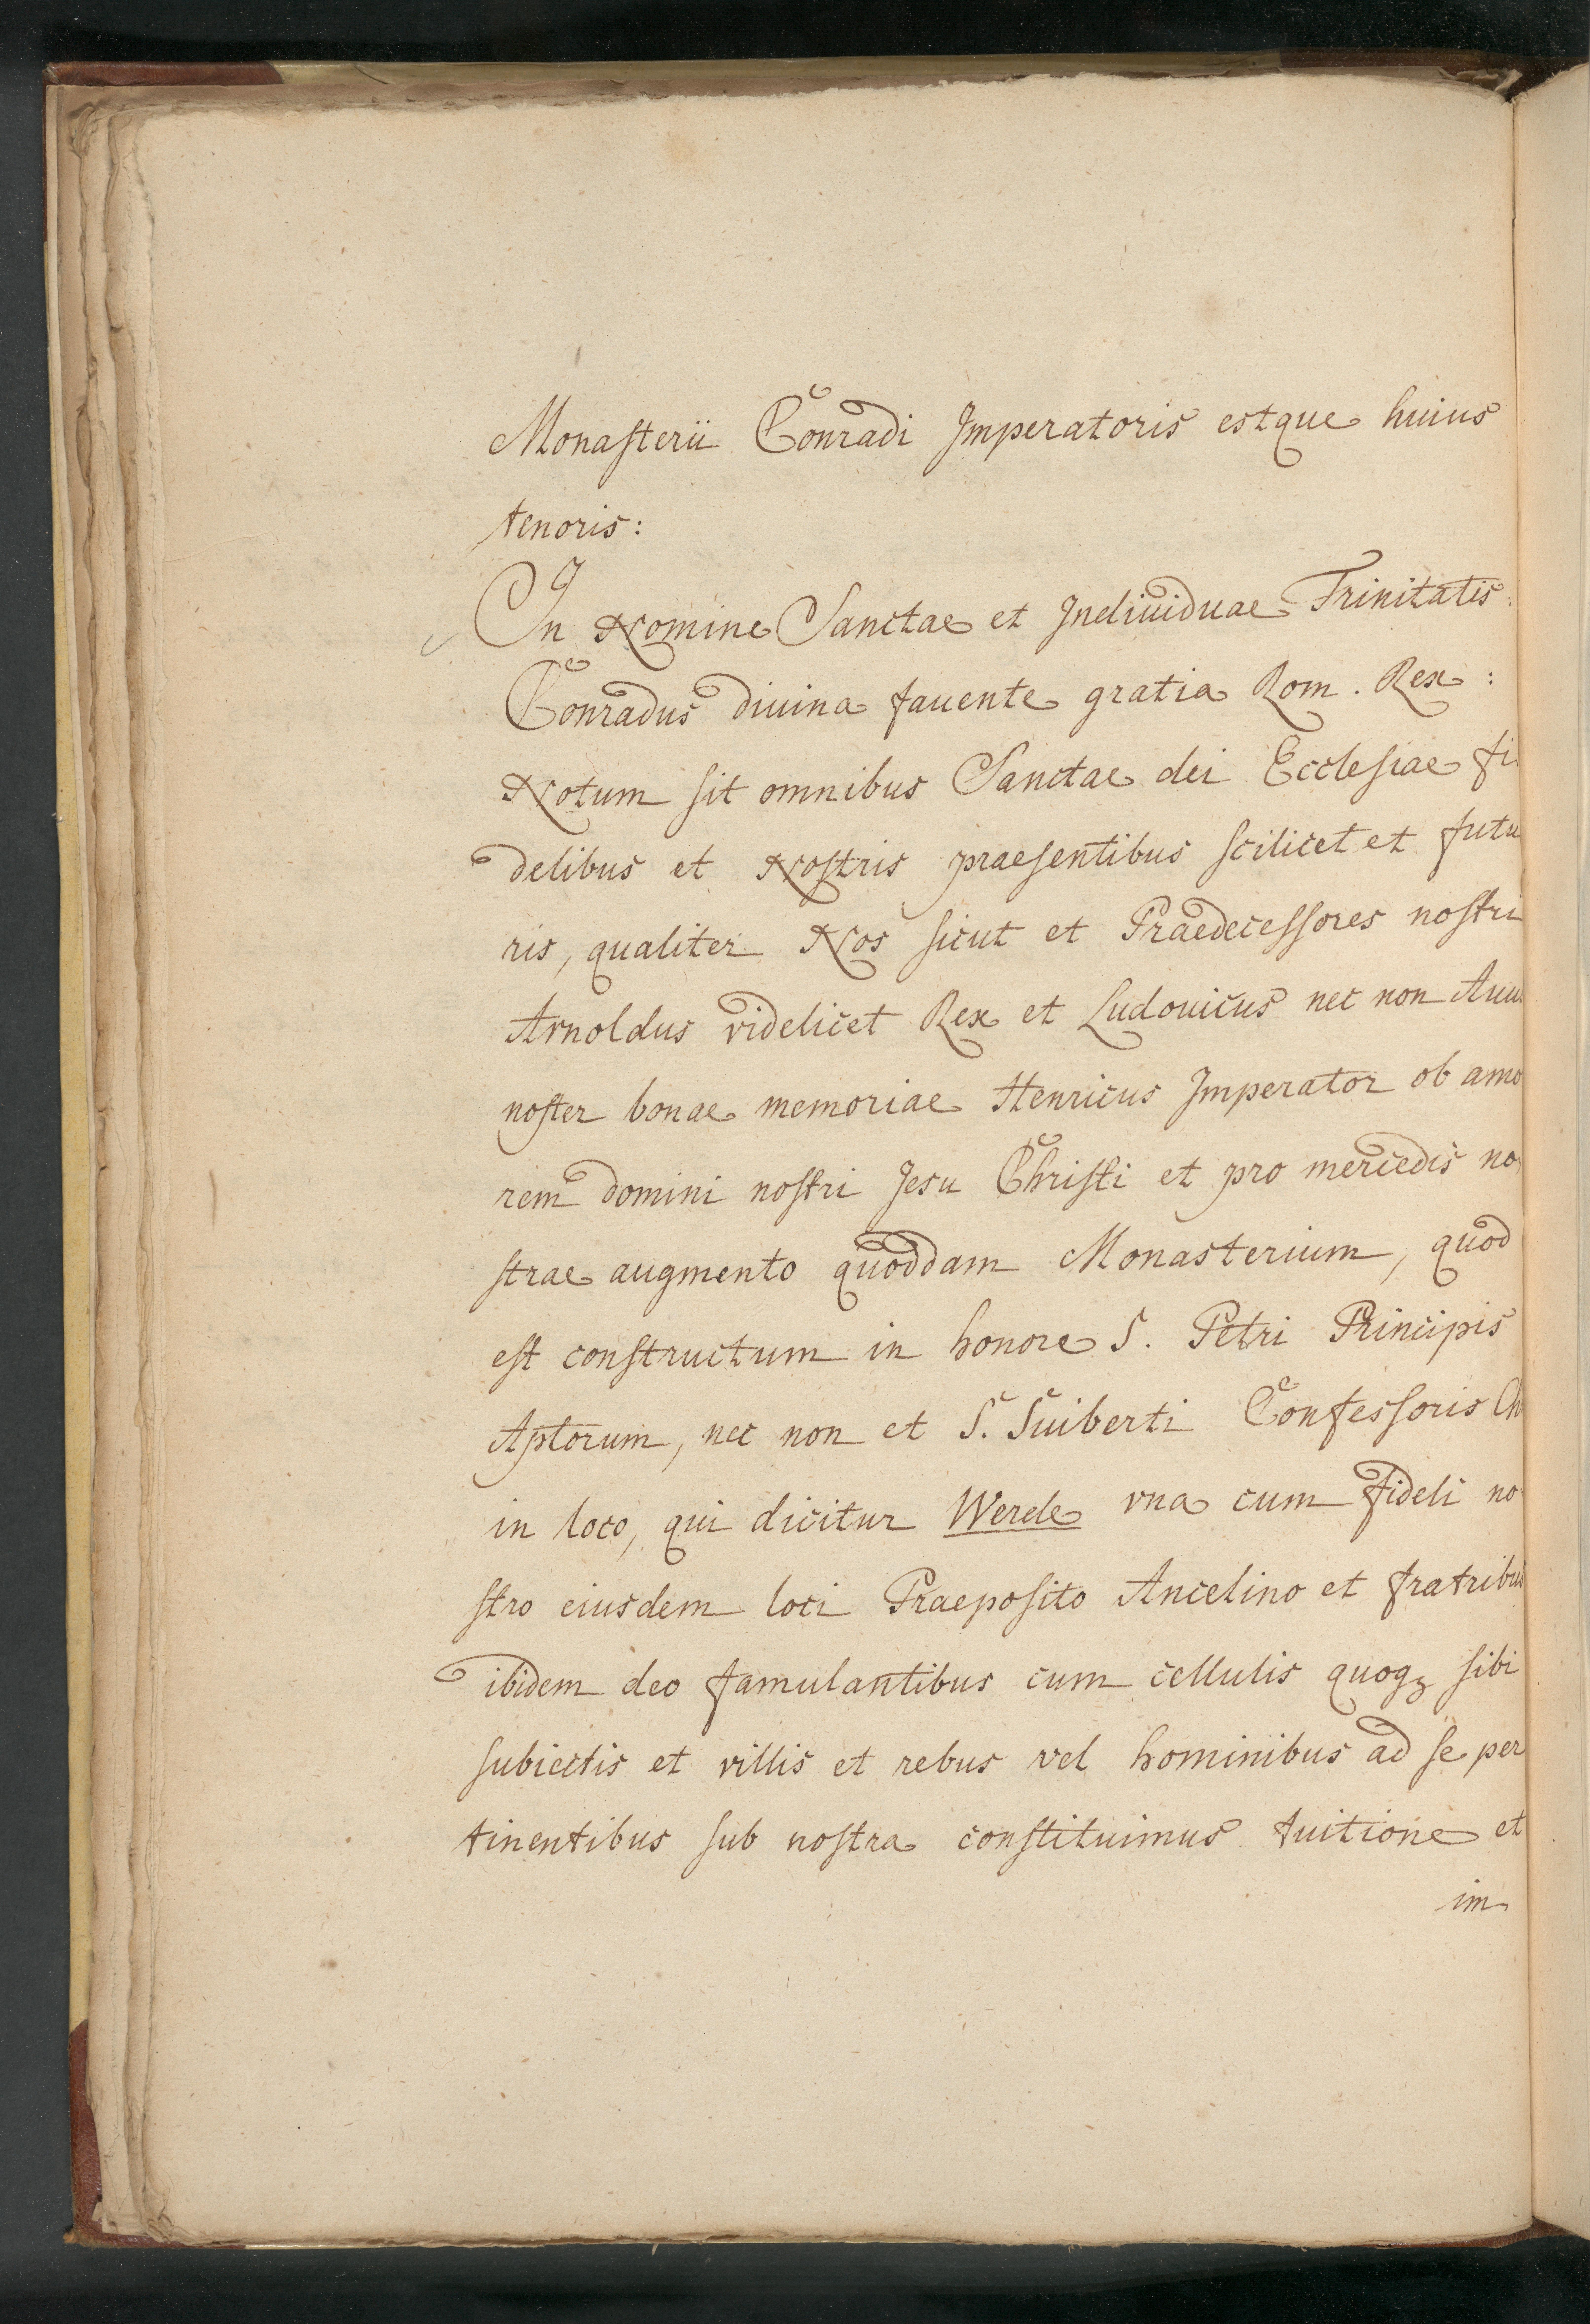 Monasterii Conradi Imperatoris estque huius
tenoris:
In Nomine Sanctae et Indiuiduae Trinitatis:
Conradus diuina fauente gratia Rom. Rex:
Notum sit omnibus Sanctae dei Ecclesiae fi
delibus et Nostris praesentibus scilicet et futu
ris, qualiter Nos sicut et Praedecessores nostri
Arnoldus videlicet Rex et Ludouicus nec non Auu
noster bonae memoriae Henricus Imperator ob amo
rem domini nostri Jesu Christi et pro mercedis no
strae augmento quoddam Monasterium, quod
est constructum in honore S. Petri Principis
Aptorum, nec non et S. Suiberti Confessoris Ch
in loco, qui dicitur Werde vna cum fideli no
stro eiusdem loci Praeposito Ancelino et fratribus
ibidem deo famulantibus cum cellulis quoqȝ sibi
subiectis et villis et rebus vel hominibus ad se per
tinentibus sub nostra constituimus tuitione et
im